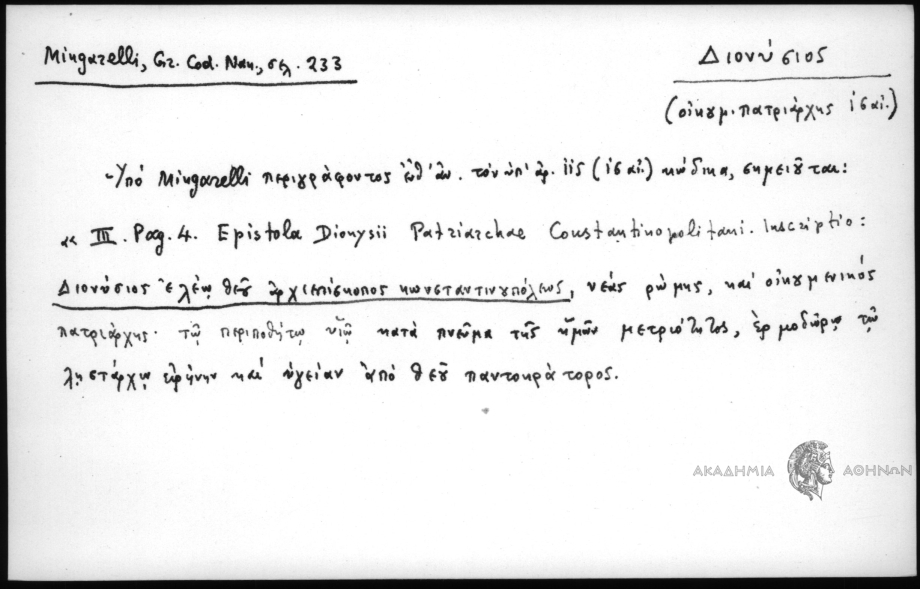 Mingarelli, Gr. Cod. Nan., σελ. 233
Διονύσιος
(οἰκουμ. πατριάρχης ις αἰ.)
Ὑπό Mingarelli περιγράφοντος ἐνθ' ἀν. τόν ὑπ' ἀρ. (ις αἰ.) κώδικα, σημειοῦται:
« III. Pag. 4. Epistola Dionysii Patriarchae Constantinopolitani. Inscriptio:
Διονύσιος ἐλέῳ θεοῦ ἀρχιεπίσκοπος κωνσταντινουπόλεως, νέας ρώμης, καί οἰκουμενικός
πατριάρχης· τῷ περιποθήτῳ υἱῷ κατά πνεῦμα τῆς ἡμῶν μετριότητος, ἑρμοδώρῳ τῷ
λῃστάρχῳ εἰρήνην καί ὑγείαν ἀπό θεοῦ παντοκράτορος.
ΑΚΑΔΗΜΙΑ ΑΘΗΝΩΝ